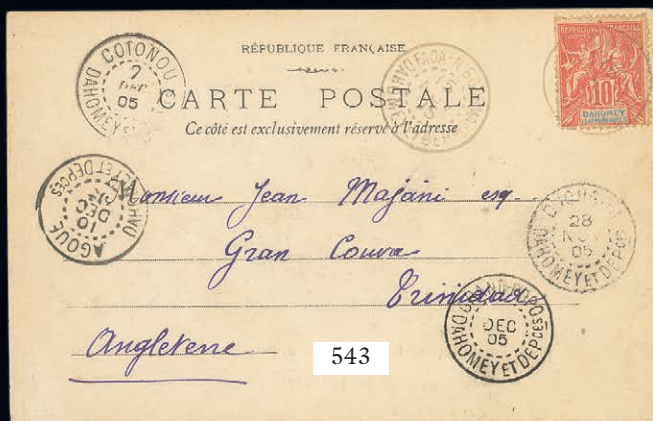 RÉPUBLIQUE FRANÇAISE
CARTE POSTALE
Ce côté est exclusivement réservé à l'adresse
COTONOU
7
DEC
05
DAHOMEY ET
10
DAHOMEY
AGOUE
10
DEC
DAHOMEY ET DEPCES
Monsieur Jean Majani esq.
Gran Couva
Trinidad
Angleterre
28
NOV
05
DAHOMEY ET DEPCES
GRAND-POPO
DEC
05
DAHOMEY ET DEPCES
543